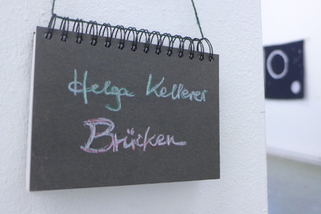 Helga Kellerer
Brücken